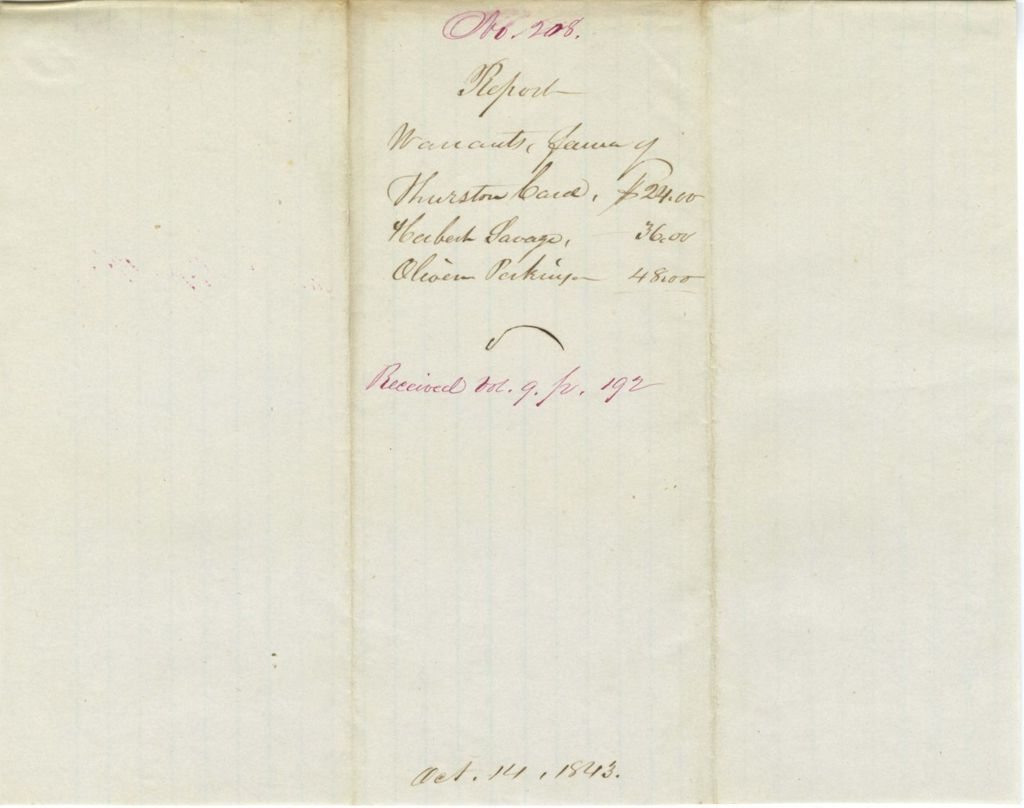 No. 208.
Report
Warrants, favor of
Thurston Card, $24.00
Herbert Savage, 36.00
Oliver Perkins 48.00
Received Vol. 9. p. 192
Oct. 14, 1843.